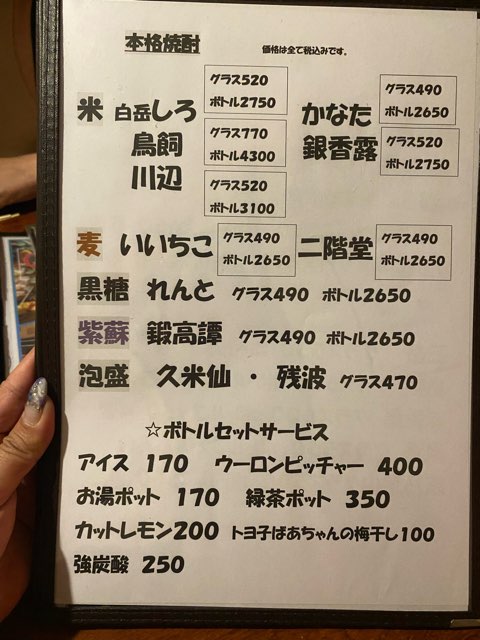 本格焼酎 価格は全て税込みです。
米 白岳しろ グラス520 ボトル2750 かなた グラス490 ボトル2650
鳥飼 グラス770 ボトル4300 銀香露 グラス520 ボトル2750
川辺 グラス520 ボトル3100
麦 いいちこ グラス490 ボトル2650 二階堂 グラス490 ボトル2650
黒糖 れんと グラス490 ボトル2650
紫蘇 鍛高譚 グラス490 ボトル2650
泡盛 久米仙 ・ 残波 グラス470
☆ボトルセットサービス
アイス 170 ウーロンピッチャー 400
お湯ポット 170 緑茶ポット 350
カットレモン200 トヨ子ばあちゃんの梅干し100
強炭酸 250